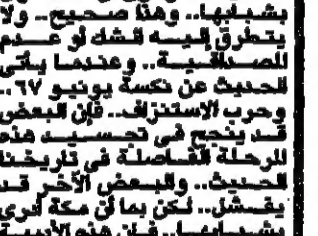 بشبابها.. وهذا صحيح.. ولا
يتطرق إليه الشك أو عدم
المصداقية.. وعندما يأتى
الحديث عن نكسة يونيو ٦٧..
وحرب الاستنزاف.. فإن البعض
قد ينجح فى تجسيد هذه
المرحلة الفاصلة فى تاريخنا
الحديث.. والبعض الآخر قد
يفشل.. لكن بما أن مكة أدرى
بشعابها.. فإن هذه الأدبية